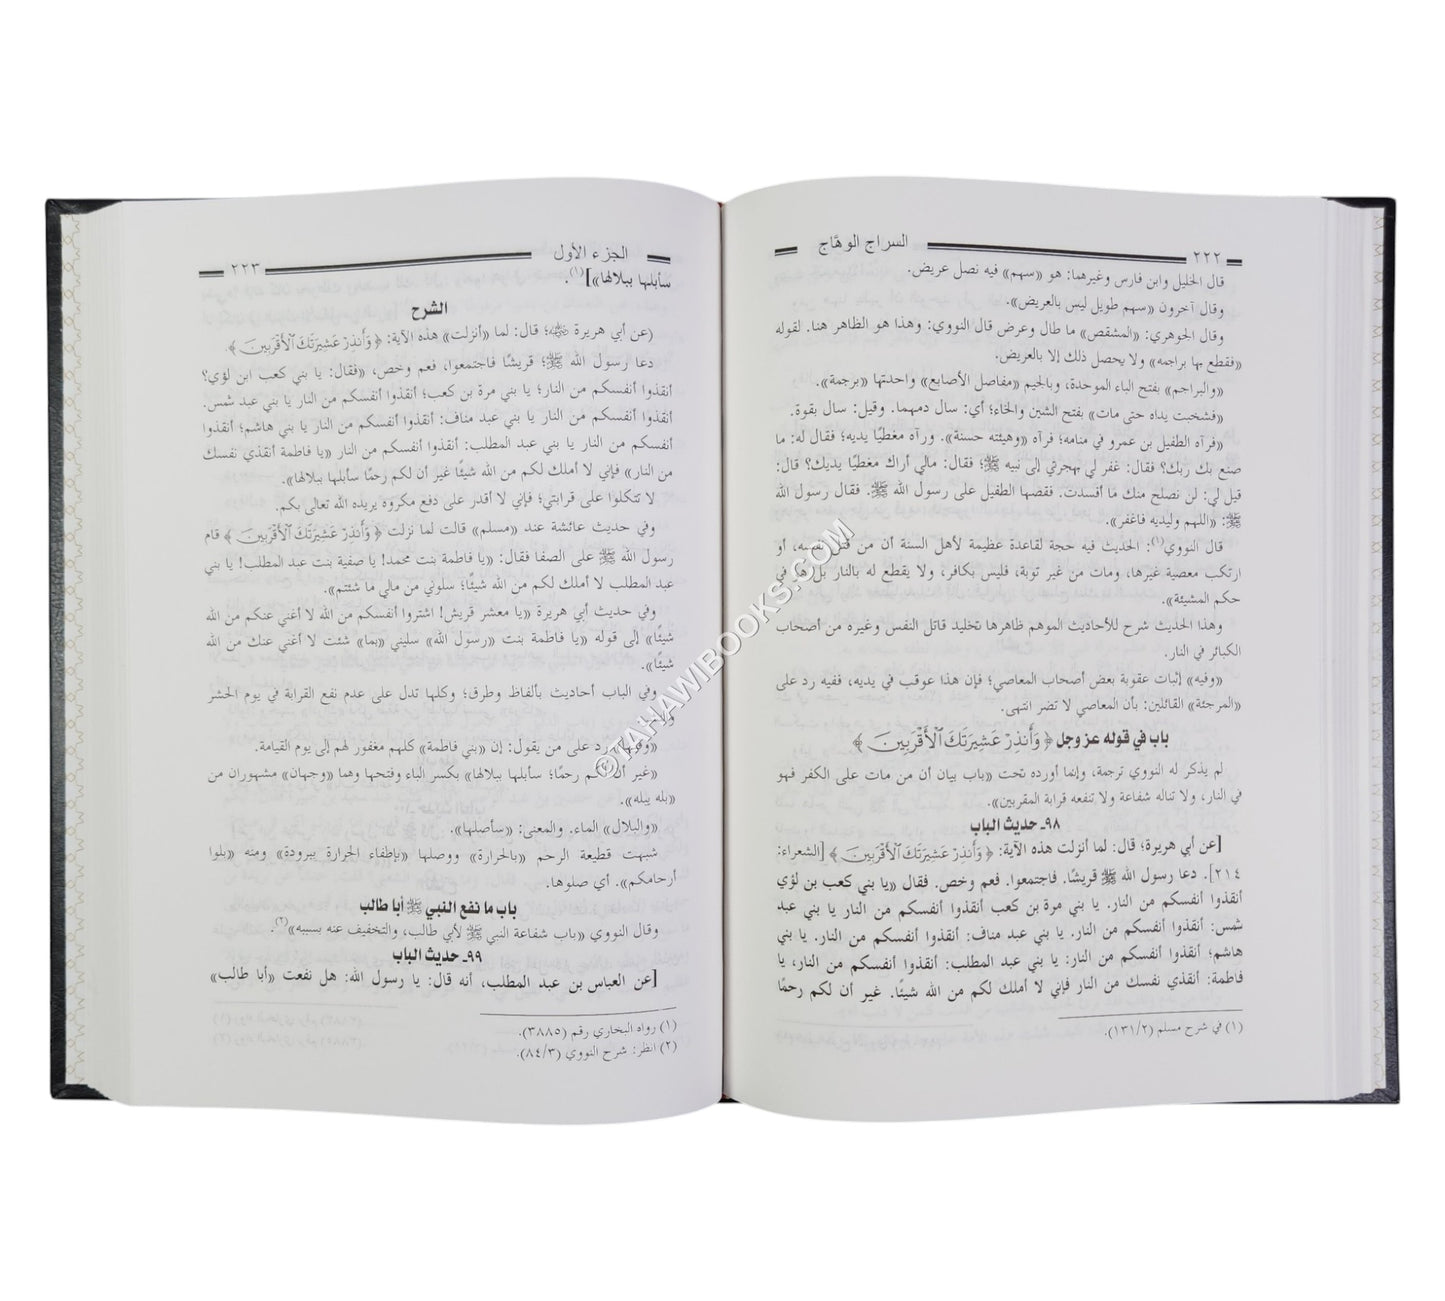 ٢٢٢
السراج الوهَّاج
قال الخليل وابن فارس وغيرهما: هو «سهم» فيه نصل عريض.
وقال آخرون «سهم طويل ليس بالعريض».
وقال الجوهري: «المشقص» ما طال وعرض قال النووي: وهذا هو الظاهر هنا. لقوله
«فقطع بها براجمه» ولا يحصل ذلك إلا بالعريض.
«والبراجم» بفتح الباء الموحدة، وبالجيم «مفاصل الأصابع» واحدتها «برجمة».
«فشخبت يداه حتى مات» بفتح الشين والخاء؛ أي: سال دمهما. وقيل: سال بقوة.
«فرآه الطفيل بن عمرو في منامه؛ فرآه «وهيئته حسنة». ورآه مغطيًا يديه؛ فقال له: ما
صنع بك ربك؟ فقال: غفر لي بهجرتي إلى نبيه ﷺ؛ فقال: مالي أراك مغطيًا يديك؟ قال:
قيل لي: لن نصلح منك ما أفسدت. فقصها الطفيل على رسول الله ﷺ. فقال رسول الله
ﷺ: «اللهم وليديه فاغفر».
قال النووي(١): الحديث فيه حجة لقاعدة عظيمة لأهل السنة أن من قتل نفسه، أو
ارتكب معصية غيرها، ومات من غير توبة، فليس بكافر، ولا يقطع له بالنار بل هو في
حكم المشيئة».
وهذا الحديث شرح للأحاديث الموهم ظاهرها تخليد قاتل النفس وغيره من أصحاب
الكبائر في النار.
«وفيه» إثبات عقوبة بعض أصحاب المعاصي؛ فإن هذا عوقب في يديه، ففيه رد على
«المرجئة» القائلين: بأن المعاصي لا تضر انتهى.
باب في قوله عز وجل ﴿وَأَنذِرْ عَشِيرَتَكَ ٱلْأَقْرَبِينَ﴾
لم يذكر له النووي ترجمة، وإنما أورده تحت «باب بيان أن من مات على الكفر فهو
في النار، ولا تناله شفاعة ولا تنفعه قرابة المقربين».
٩٨ـ حديث الباب
[عن أبي هريرة؛ قال: لما أنزلت هذه الآية: ﴿وَأَنذِرْ عَشِيرَتَكَ ٱلْأَقْرَبِينَ﴾ [الشعراء:
٢١٤]. دعا رسول الله ﷺ قريشًا. فاجتمعوا. فعم وخص. فقال «يا بني كعب بن لؤي
أنقذوا أنفسكم من النار. يا بني مرة بن كعب أنقذوا أنفسكم من النار يا بني عبد
شمس: أنقذوا أنفسكم من النار. يا بني عبد مناف: أنقذوا أنفسكم من النار. يا بني
هاشم؛ أنقذوا أنفسكم من النار: يا بني عبد المطلب: أنقذوا أنفسكم من النار، يا
فاطمة: أنقذي نفسك من النار فإني لا أملك لكم من الله شيئًا. غير أن لكم رحمًا
(١) في شرح مسلم (١٣١/٢).
الجزء الأول
٢٢٣
سأبلها ببلالها»](١).
الشرح
(عن أبي هريرة ﷺ؛ قال: لما «أنزلت» هذه الآية: ﴿وَأَنذِرْ عَشِيرَتَكَ ٱلْأَقْرَبِينَ﴾.
دعا رسول الله ﷺ؛ قريشًا فاجتمعوا، فعم وخص، «فقال: يا بني كعب ابن لؤي؟
أنقذوا أنفسكم من النار؛ يا بني مرة بن كعب؛ أنقذوا أنفسكم من النار يا بني عبد شمس.
أنقذوا أنفسكم من النار يا بني عبد مناف: أنقذوا أنفسكم من النار يا بني هاشم؛ أنقذوا
أنفسكم من النار يا بني عبد المطلب: أنقذوا أنفسكم من النار «يا فاطمة أنقذي نفسك
من النار» فإني لا أملك لكم من الله شيئًا غير أن لكم رحمًا سأبلها ببلالها».
لا تتكلوا على قرابتي؛ فإني لا أقدر على دفع مكروه يريده الله تعالى بكم.
وفي حديث عائشة عند «مسلم» قالت لما نزلت ﴿وَأَنذِرْ عَشِيرَتَكَ ٱلْأَقْرَبِينَ﴾ قام
رسول الله ﷺ على الصفا فقال: «يا فاطمة بنت محمد! يا صفية بنت عبد المطلب! يا بني
عبد المطلب لا أملك لكم من الله شيئًا؛ سلوني من مالي ما شئتم».
وفي حديث أبي هريرة «يا معشر قريش! اشتروا أنفسكم من الله لا أغني عنكم من الله
شيئًا» إلى قوله «يا فاطمة بنت «رسول الله» سليني «بما» شئت لا أغني عنك من الله
شيئًا».
وفي الباب أحاديث بألفاظ وطرق؛ وكلها تدل على عدم نفع القرابة في يوم الحشر
«وفيها» رد على من يقول: إن «بني فاطمة» كلهم مغفور لهم إلى يوم القيامة.
«غير أن لكم رحمًا؛ سأبلها ببلالها» بكسر الباء وفتحها وهما «وجهان» مشهوران من
«بله يبله».
«والبلال» الماء. والمعنى: «سأصلها».
شبهت قطيعة الرحم «بالحرارة» ووصلها «بإطفاء الحرارة ببرودة» ومنه «بلوا
أرحامكم». أي صلوها.
باب ما نفع النبي ﷺ أبا طالب
وقال النووي «باب شفاعة النبي ﷺ لأبي طالب، والتخفيف عنه بسببه»(٢).
٩٩ـ حديث الباب
[عن العباس بن عبد المطلب، أنه قال: يا رسول الله: هل نفعت «أبا طالب»
(١) رواه البخاري رقم (٣٨٨٥).
(٢) انظر: شرح النووي (٨٤/٣).
©TAHAWIBOOKS.COM